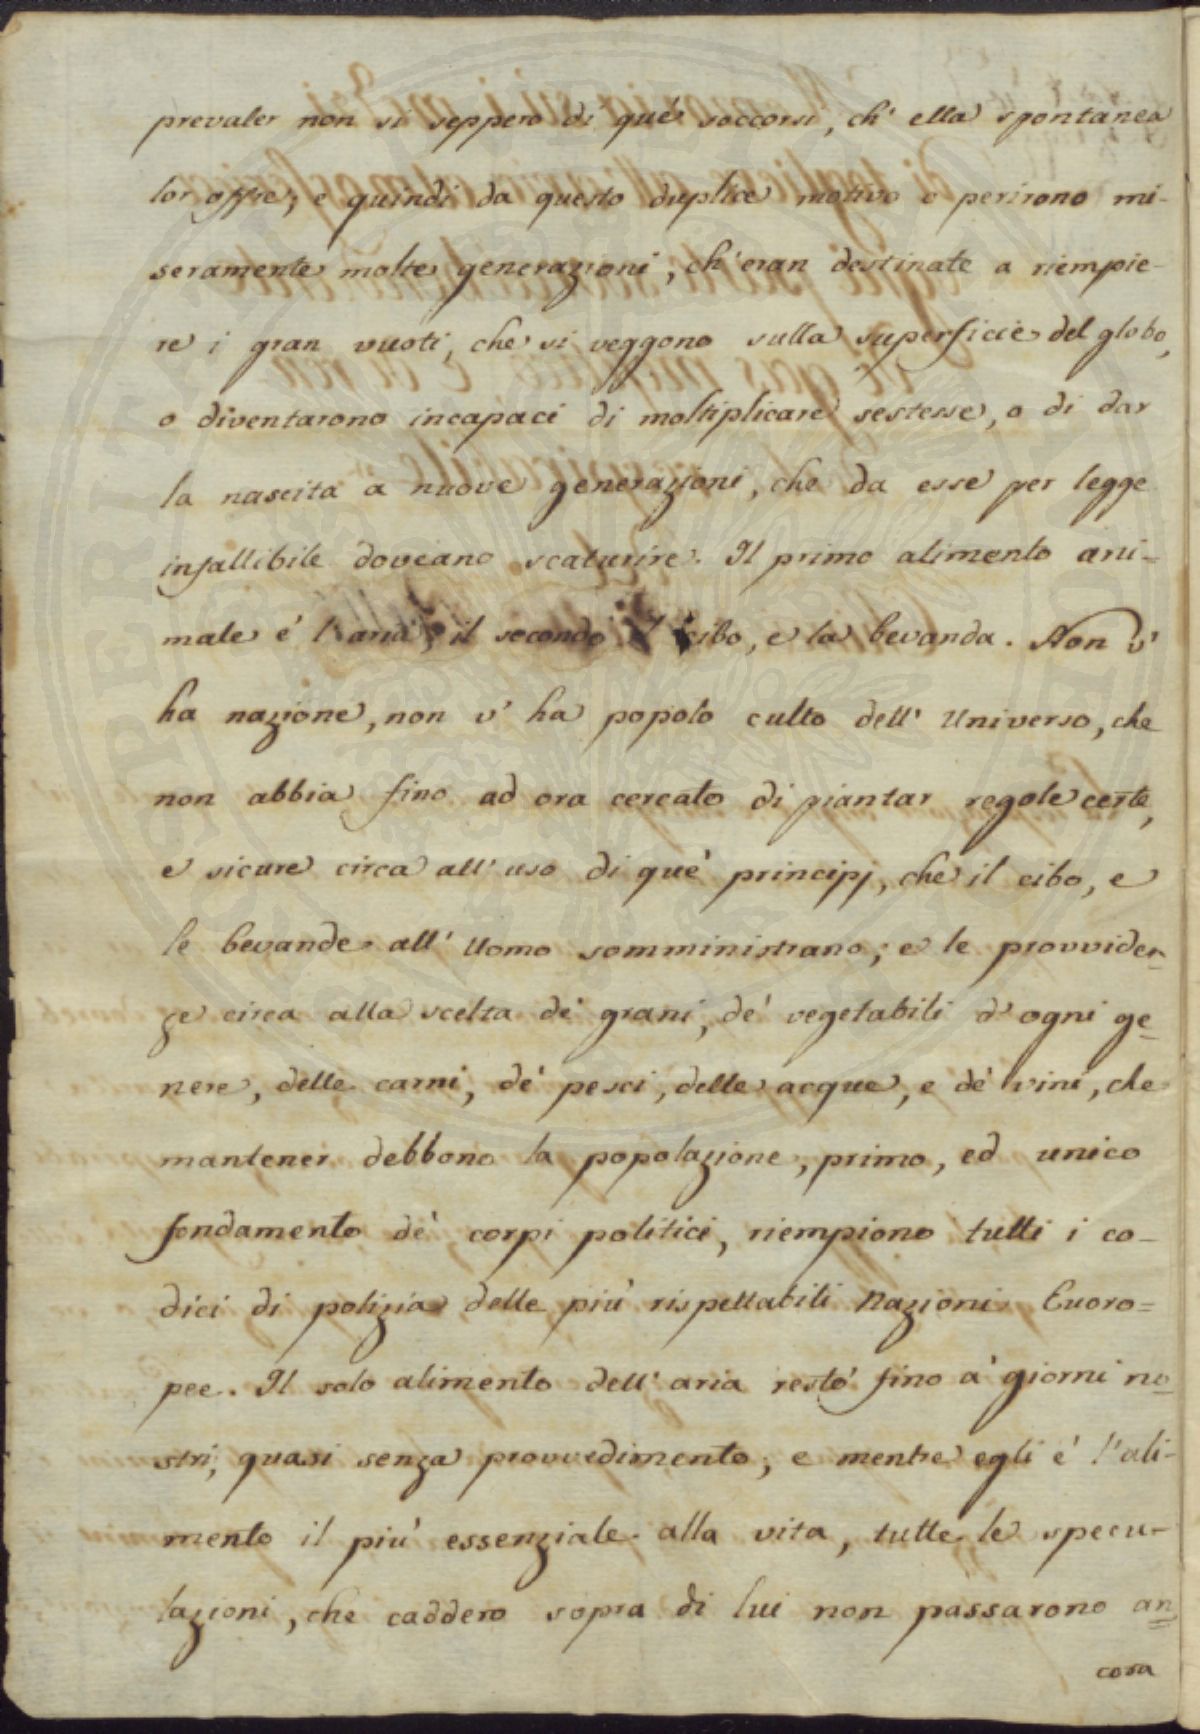 prevaler non si seppero di què soccorsi, ch' ella spontanea
lor offre; e quindi da questo duplice motivo o perirono mi-
seramente molte generazioni, ch'eran destinate a riempie-
re i gran vuoti, che si veggono sulla superficie del globo,
o diventarono incapaci di moltiplicare sestesse, o di dar
la nascita a nuove generazioni, che da esse per legge
infallibile doveano scaturire. Il primo alimento ani-
male è l'aria, il secondo il cibo, e la bevanda. Non v'
ha nazione, non v' ha popolo culto dell' Universo, che
non abbia fino ad ora cercato di piantar regole certe,
e sicure circa all' uso di què principj, che il cibo, e
le bevande all' Uomo somministrano; e le provviden-
ze circa alla scelta dè grani, dè vegetabili d' ogni ge-
nere, delle carni, dè pesci, delle acque, e dè vini, che
mantener debbono la popolazione, primo, ed unico
fondamento dè corpi politici, riempiono tutti i co-
dici di polizia delle più rispettabili Nazioni Euoro=
pee. Il solo alimento dell' aria restò fino à giorni no-
stri, quasi senza provvedimento; e mentre egli è l'ali-
mento il più essenziale alla vita, tutte le specu-
lazioni, che caddero sopra di lui non passarono an
cora